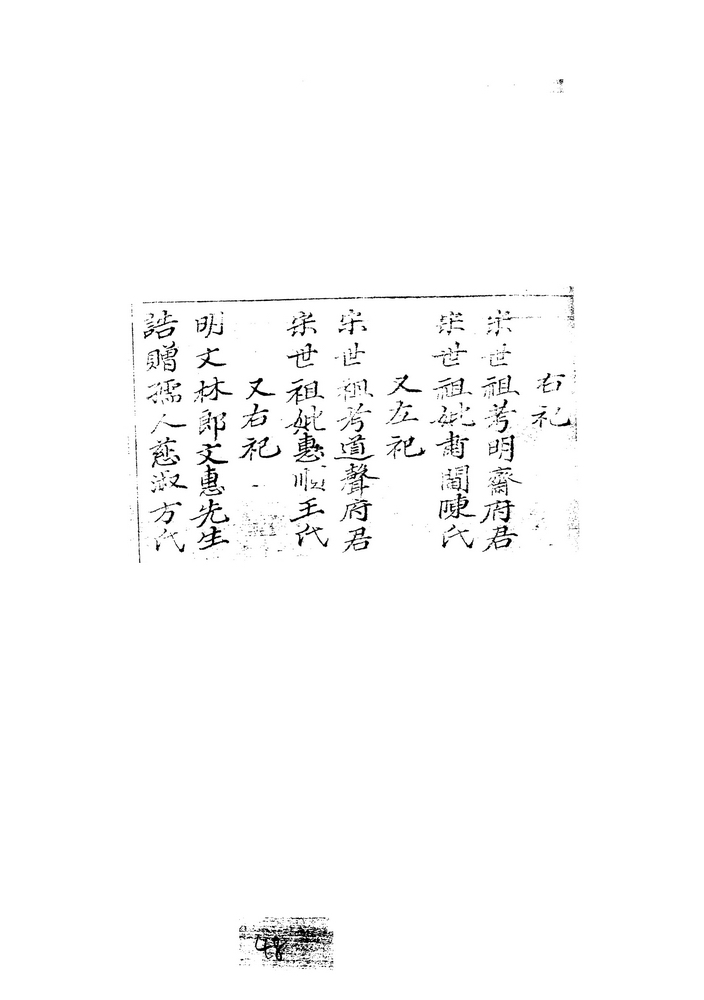 右祀
宋世祖考明齋府君
宋世祖妣陳氏
又左祀
宋世祖考道聲府君
宋世祖妣惠順王氏
又右祀
明文林郎文惠先生
誥贈孺人慈淑方氏
48